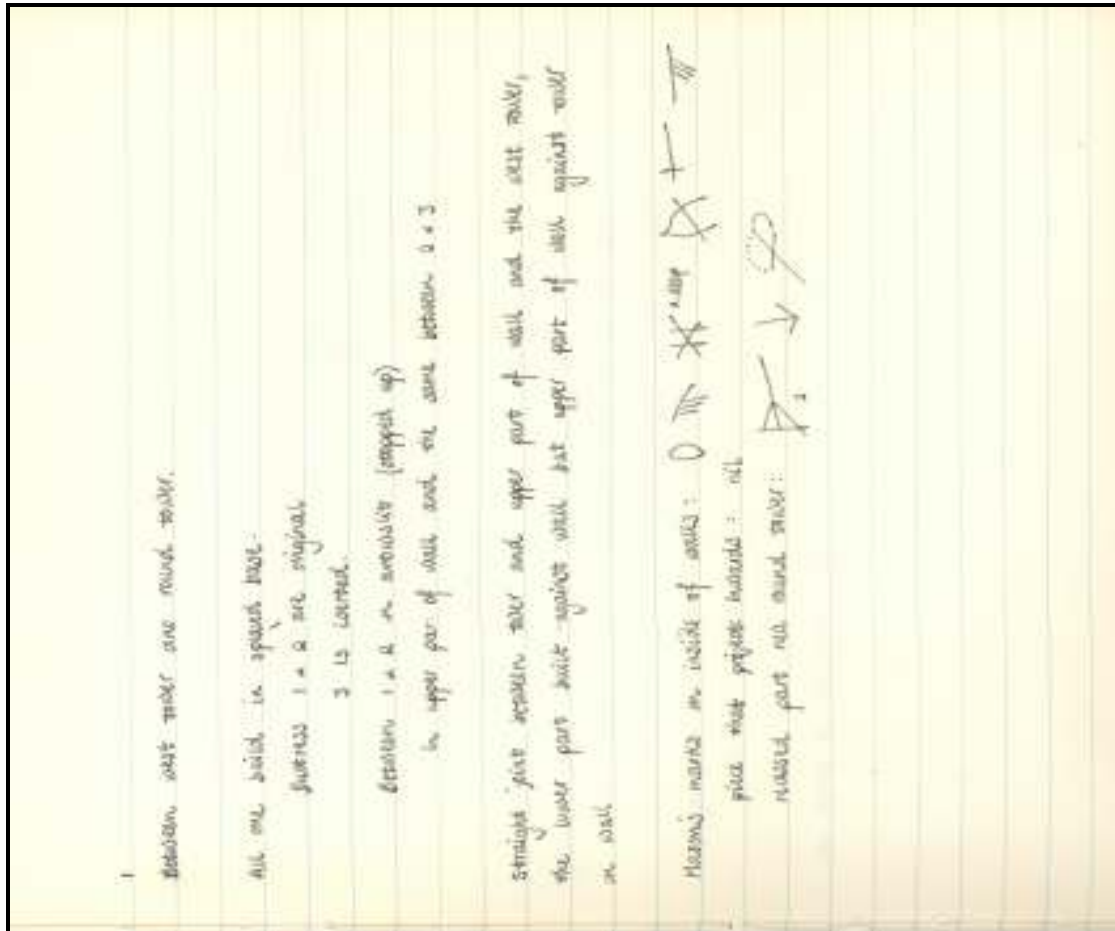 1
Between west tower and round tower.
All one build in splayed base -
Buttress 1 & 2 are original
3 is inserted.
Between 1 & 2 an arrowslit (stopped up)
in upper par of wall and the same between 2 & 3
Straight joint between tower and upper part of wall and the west tower,
the lower part built against wall but upper part of wall against tower
in wall
Masons marks on inside of walls:
piece that projects inwards: nil
recessed part nea round tower: